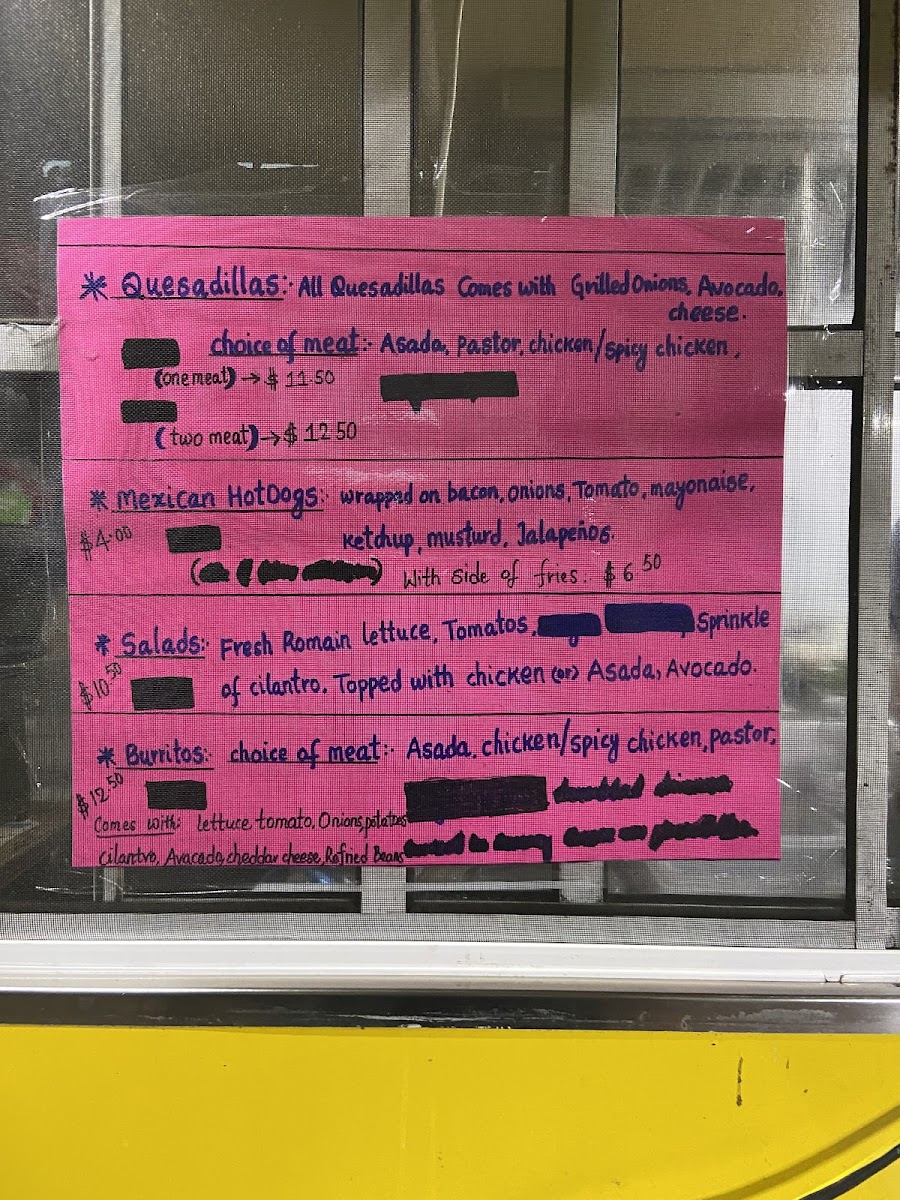 * Quesadillas:- All Quesadillas Comes with Grilled Onions, Avocado,
cheese.
choice of meat:- Asada, Pastor, chicken/spicy chicken,
(one meat) → $ 11.50
(two meat) → $ 12 50
* Mexican HotDogs:- wrapped on bacon, onions, Tomato, mayonaise,
$4.00 ketchup, musturd, Jalapeños.
With side of fries. $ 6 50
* Salads:- Fresh Romain lettuce, Tomatos, Sprinkle
$10.50 of cilantro. Topped with chicken (or) Asada, Avocado.
* Burritos:- choice of meat:- Asada, chicken/spicy chicken, pastor,
$12.50
Comes with: lettuce, tomato, Onions, potatoes
cilantro, Avacado, cheddar cheese, Refried Beans